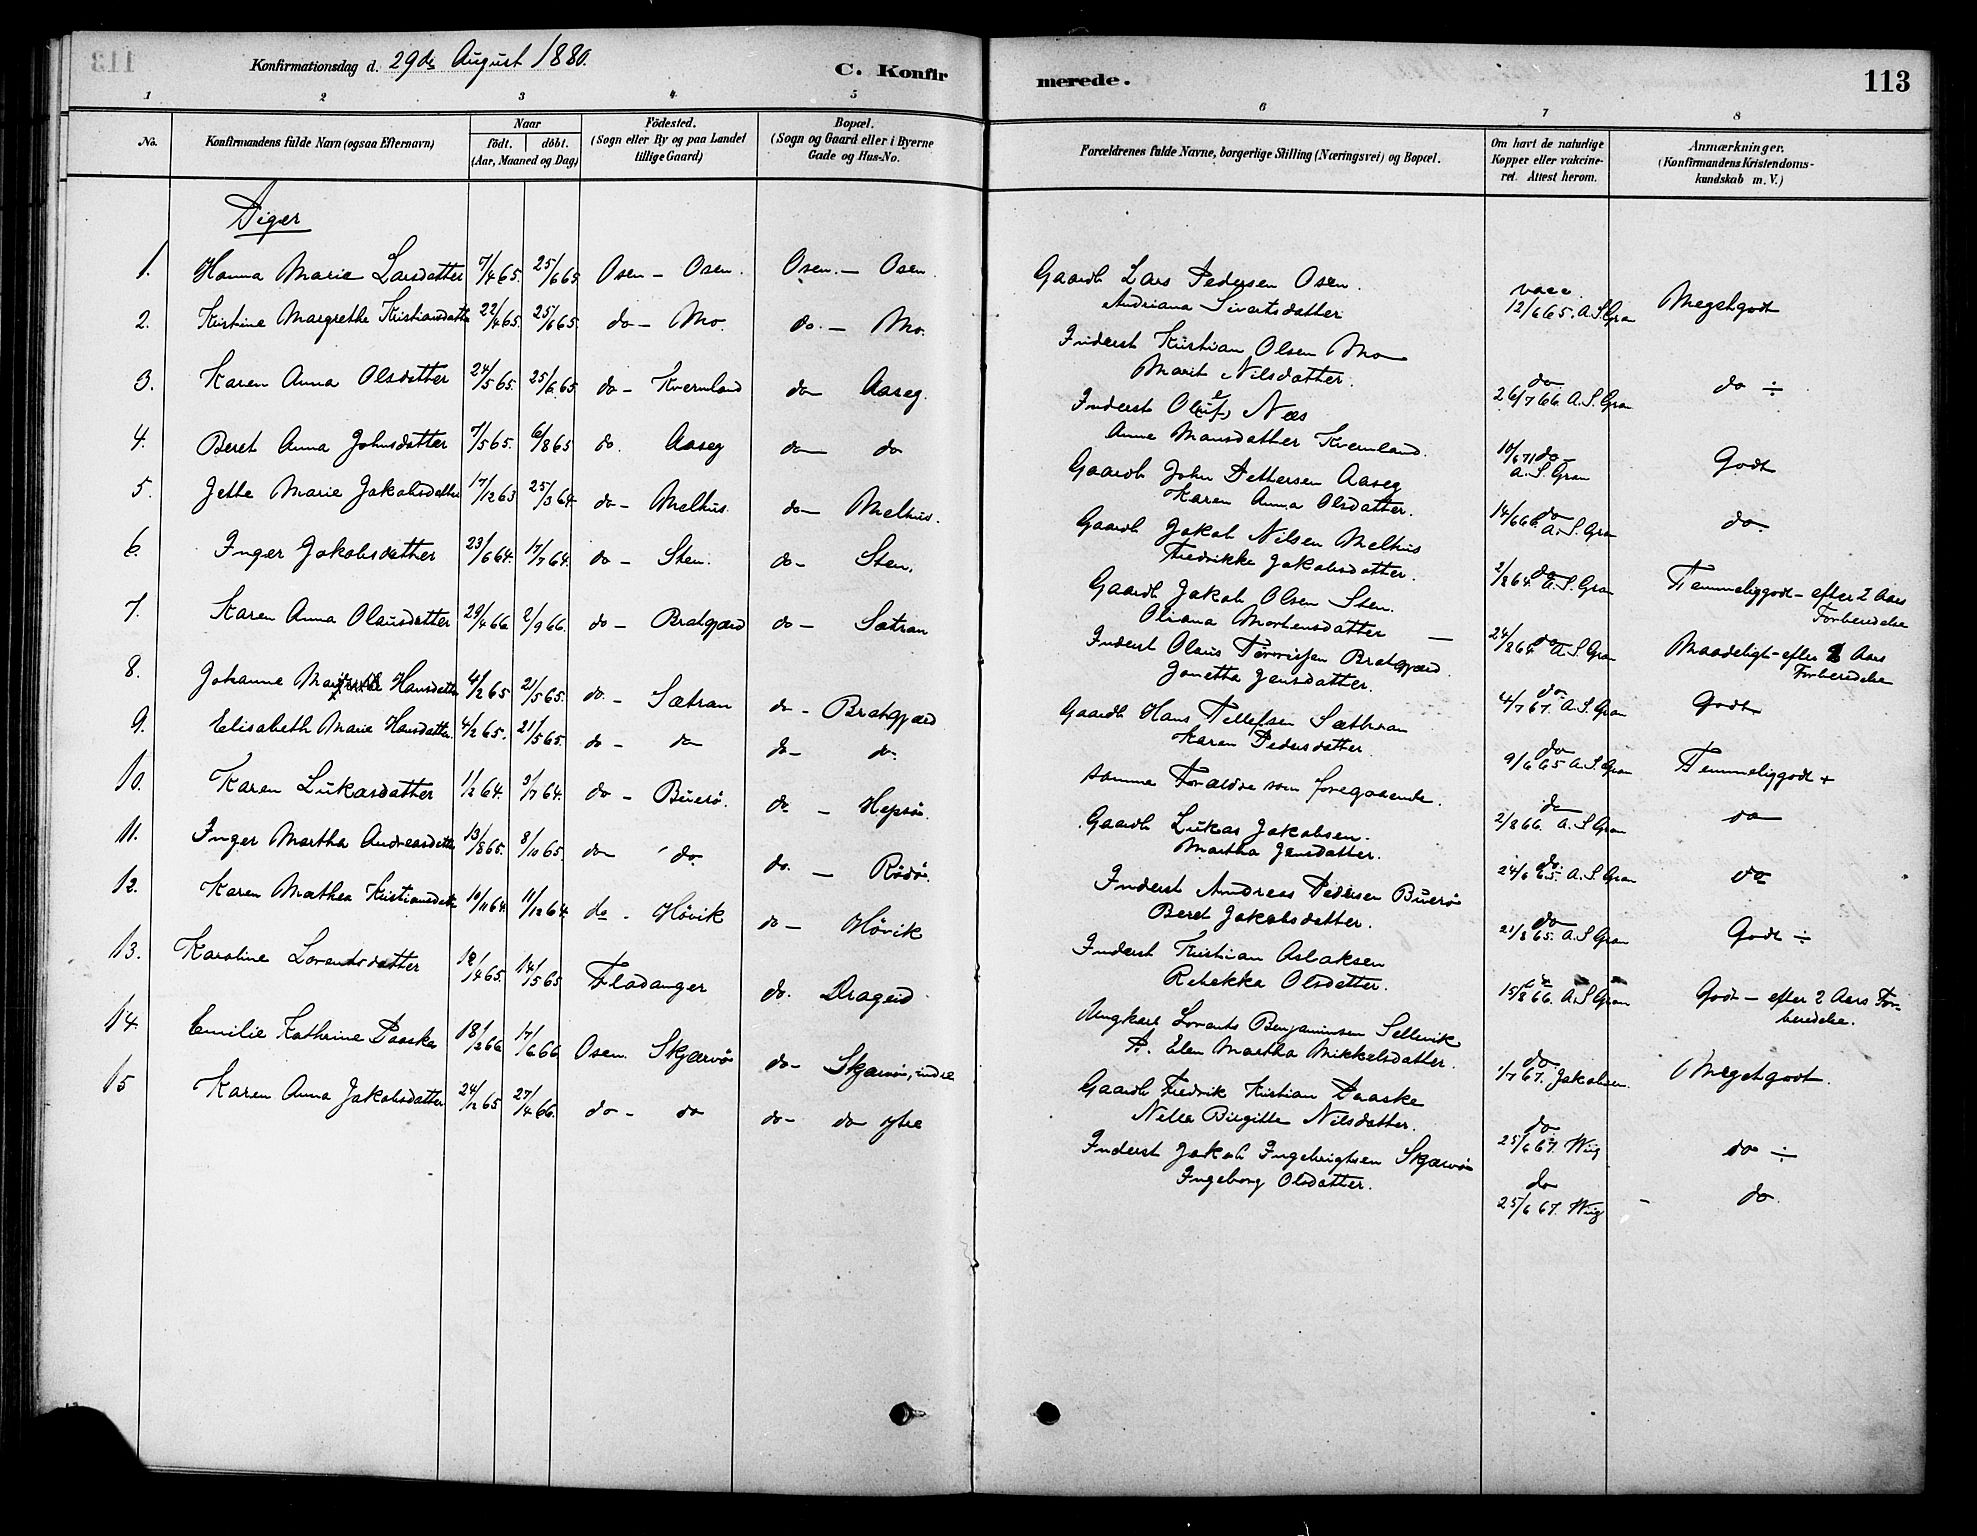 113
Konfirmationsdag d. 29de August 1880.
C. Konfirmerede.
1 2 3 4 5 6 7 8
No.
Konfirmandens fulde Navn (ogsaa Efternavn)
Naar
födt. döbt.
(Aar, Maaned og Dag)
Födested.
(Sogn eller By og paa Landet
tillige Gaard)
Bopæl.
(Sogn og Gaard eller i Byerne
Gade og Hus-No.
Forældrenes fulde Navne, borgerlige Stilling (Næringsvei) og Bopæl.
Om havt de naturlige
Kopper eller vakcine-
ret. Attest herom.
Anmærkninger.
(Konfirmandens Kristendoms-
kundskab m. V.)
Piger
1. Hanna Marie Larsdatter 7/4 65. 25/6 65. Osen - Osen. Osen. - Osen. Gaardb Lars Pedersen Osen.
Andriana Sivertsdatter
vacc.
12/6 65. A. S. Gran Megetgodt
2. Kristine Margrethe Kristiansdatter 22/4 65. 25/6 65. do - Mo. do. - Mo. Inderst Kristian Olsen Mo
Marit Nilsdatter.
do
26/7 66. A. S. Gran do ÷
3. Karen Anna Olsdatter 24/5 65. 25/6 65 do - Kvernland do Aaseg. Inderst Næs
Anne Mansdatter Kvernland.
10/6 71 do
A. S. Gran Godt
4. Beret Anna Johnsdatter 7/5 65. 6/8 65 do. Aaseg do do Gaardb John Pettersen Aaseg
Karen Anna Olsdatter.
14/6 66. do
A. S. Gran do
5. Jette Marie Jakobsdatter 17/12 63 25/3 64. do - Melhus. do - Melhus. Gaardb Jakob Nilsen Melhus
Fredrikke Jakobsdatter.
2/8 64. do A. S. Gran Temmeliggodt - efter 2 Aars
Forberedelse
6. Inger Jakobsdatter 23/6 64. 17/7 64. do - Sten. do - Sten. Gaardb Jakob Olsen Sten.
Oliana Mortensdatter -
24/8 64. do A. S. Gran Maadeligt - efter 2 Aars
Forberedelse
7. Karen Anna Olausdatter 29/4 66 2/9 66. do - Bratgjærd do - Sætran Inderst Olaus Tørrissen Bratgjærd.
Jonetha Jensdatter.
do
4/7 67. A. S. Gran Godt
8. Johanne Hansdatter 4/2 65 21/5 65. do. - Sætran do - Bratgjærd Gaardb Hans Tellefsen Sæthran
Karen Pedersdatter.
do
9/6 65 A. S. Gran Temmeliggodt +
9. Elisabeth Marie Hansdatter. 4/2 65. 21/5 65. do - do do - do. samme Forældre som foregaaende.
do
2/8 66. A. S. Gran do
10. Karen Lukasdatter 1/2 64. 3/7 64. do - Buerø. do - Hepsø. Gaardb Lukas Jakobsen.
Martha Jensdatter.
do.
24/6 65. A. S. Gran do
11. Inger Martha Andreasdatter 13/8 65. 8/10 65. do do. do. - Rødø. Inderst Andreas Pedersen Buerø
Beret Jakobsdatter.
do
21/8 65. A. S. Gran Godt ÷
12. Karen Mathea Kristiansdatter 10/11 64. 11/12 64. do. Høvik do - Høvik Inderst Kristian Aslaksen
Rebekka Olsdatter.
15/8 66. A. S. Gran Godt - efter 2 Aars For-
beredelse.
13. Karoline Lorentsdatter 12/4 65. 14/5 65 Fladanger do. Drageid. Ungkarl Lorents Benjaminsen Sellevik
P. Elen Martha Mikkelsdatter.
do
1/7 67. Jakobsen. Megetgodt.
14. Emilie Kathrine Paaske 18/2 66 17/6 66 Osen. Skjærvø do - Skjærvø, indre Gaardb Fredrik Kristian Paaske
Nella Birgitte Nilsdatter.
do
25/6 67. Wiig do ÷
15 Karen Anna Jakobsdatter 24/12 65 27/4 66. do - do do - do ytre Inderst Jakob Ingebrigtsen Skjærvø
Ingeborg Olsdatter.
do
25/6 67. Wiig - do